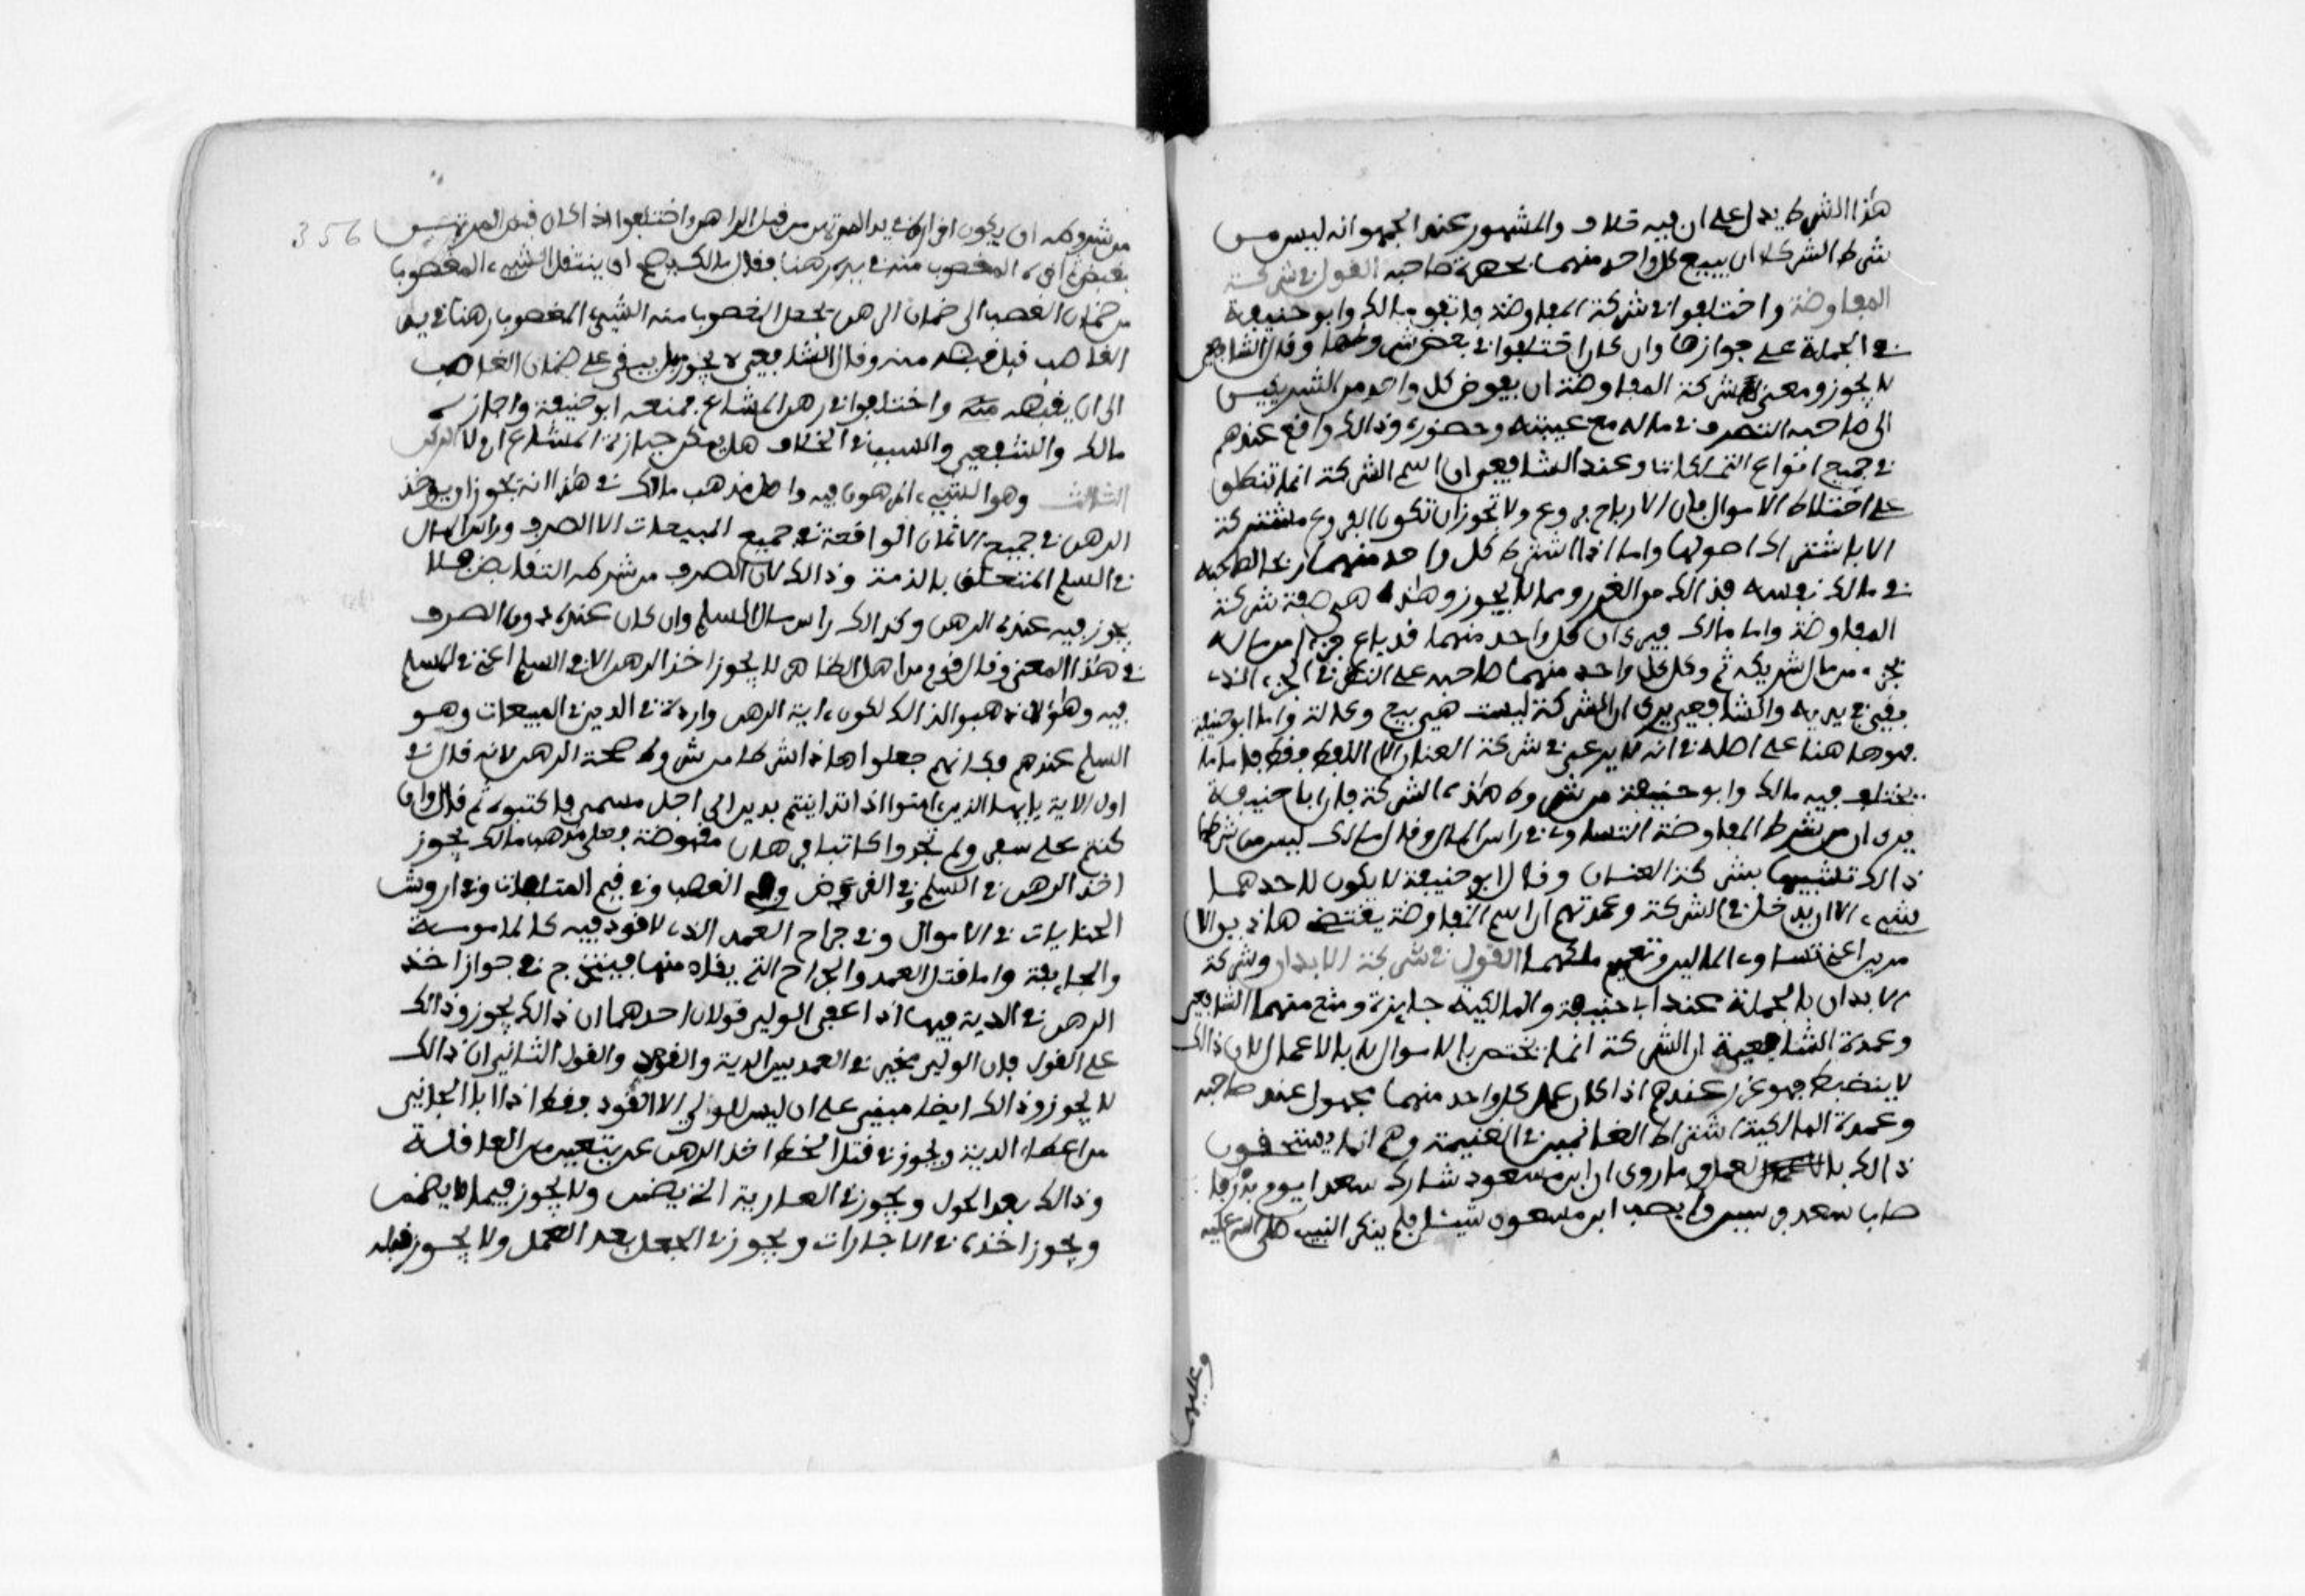 هذا الشرط يدل على ان فيه خلاف والمشهور عند الجمهو انه ليس من
شرط الشركة ان يبيع كل واحد منهما بحضرة صاحبه القول في شركة
المفاوضة واختلفوا في شركة المفاوضة فاتفق مالك وابو حنيفة
في الجملة على جوازها وان كان اختلفوا في بعض شروطها وقال الشافعي
لا يجوز ومعنى شركة المفاوضة ان يفوض كل واحد من الشريكين
الى صاحبه التصرف في ماله مع غيبته وحضوره وذالك واقع عندهم
في جميع انواع التملكات وعند الشافعي ان اسم الشركة انما تنطلق
على اختلاط الاموال فان الارباح فروع ولا تجوز ان تكون الفروع مشتركة
الا باشتراك اصولها واما اذا اشترط كل واحد منهما ربحا لصاحبه
في مالك نفسه فذالك من الغرر ومما لا يجوز وهذه هي صفة شركة
المفاوضة واما مالك فيرى ان كل واحد منهما قد باع جزءا من ماله
بجزء من مال شريكه ثم وكل كل واحد منهما صاحبه على النظر في الجزء الذي
بقي في يديه والشافعي يرى ان الشركة ليست هي بيع ووكالة واما ابو حنيفة
فهو هاهنا على اصله في انه لا يرعى في شركة العنان الا النقد فقط فاما ما
يختلف فيه مالك وابو حنيفة من شروط هذه الشركة فان ابا حنيفة
يرى ان من شرط المفاوضة التساوي في راس المال وقال مالك ليس من شرطها
ذالك تشبيها بشركة العنان وقال ابو حنيفة لا يكون لاحدهما
شيء الا ان يدخل في الشركة وعمدتهم ان اسم المفاوضة يقتضي هاذين الا
مرين اعني تساوي المالين وتعميم ملكهما القول في شركة الابدان وشركة
الابدان بالجملة عند ابي حنيفة والمالكية جايزة ومنع منهما الشافعي
وعمدة الشافعية ان الشركة انما تختص بالاموال لا بالاعمال لان ذالك
لا ينضبط فهو غرر عندهم اذا كان عمل كل واحد منهما مجهول عند صاحبه
وعمدة المالكية اشتراط الغانمين في الغنيمة وهم انما يستحقون
ذالك بالعمل وما روى ان ابن مسعود شارك سعدا يوم بدر فا
صاب سعد فرسين ولم يصب ابن مسعود شيئا فلم ينكر النبي صلى الله عليه
وعليه
356
من شروطه ان يكون اقراره في يد المرتهن من قبل الراهن واختلفوا اذا كان قبض المرتهن
بغصب المغصوب منه في يده رهنا فقال مالك يصح ان ينتقل الشيء المغصوب
من ضمان الغصب الى ضمان الرهن يجعل المغصوب منه الشيء المغصوب رهنا في يد
الغاصب قبل قبضه منه وقال الشافعي لا يجوز بل يبقى على ضمان الغاصب
الى ان يقبضه منه واختلفوا في رهن المشاع فمنعه ابو حنيفة واجازه
مالك والشافعي والسبب في الخلاف هل يمكن حيازة المشاع ام لا الركن
الثالث وهو الشيء المرهون فيه واصل مذهب مالك في هذا انه يجوز ان يوخذ
الرهن في جميع الاثمان الواقعة في جميع المبيعات الا الصرف وراس المال
في السلم المتعلق بالذمة وذالك لان الصرف من شرطه التقابض فلا
يجوز فيه عنده الرهن وكذالك راس مال السلم وان كان عنده دون الصرف
في هذا المعنى وقال قوم من اهل الظاهر لا يجوز اخذ الرهن الا في السلم اعني في المسلم
فيه وهؤلاء ذهبوا لذالك لكون اية الرهن واردة في الدين في المبيعات وهو
السلم عندهم فكانهم جعلوا هاذا شرطا من شروط صحة الرهن لانه قال في
اول الاية يايها الذين امنوا اذا تداينتم بدين الى اجل مسمى فاكتبوه ثم قال وان
كنتم على سفر ولم تجدوا كاتبا فرهان مقبوضة وعلى مذهب مالك يجوز
اخذ الرهن في السلم وفي القرض وفي الغصب وفي قيم المتلفات وفي اروش
الجنايات في الاموال وفي جراح العمد الذي لا قود فيه كالمامومة
والجايفة واما قتل العمد والجراح التي يقاد منها فيتخرج في جواز اخذ
الرهن في الدية فيها اذا عفى الولي قولان احدهما ان ذالك يجوز وذالك
على القول فان الولي مخير في العمد بين الدية والقود والقول الثاني ان ذالك
لا يجوز وذالك ايضا مبني على ان ليس للولي الا القود فقط اذا ابا الجاني
من اعطاء الدية ويجوز في قتل الخطا اخذ الرهن عن يتعين من العاقلة
وذالك بعد الحول ويجوز في العارية التي يضمن ولا يجوز فيما لا يضمن
ويجوز اخذه في الاجارات ويجوز في الجعل بعد العمل ولا يجوز قبله